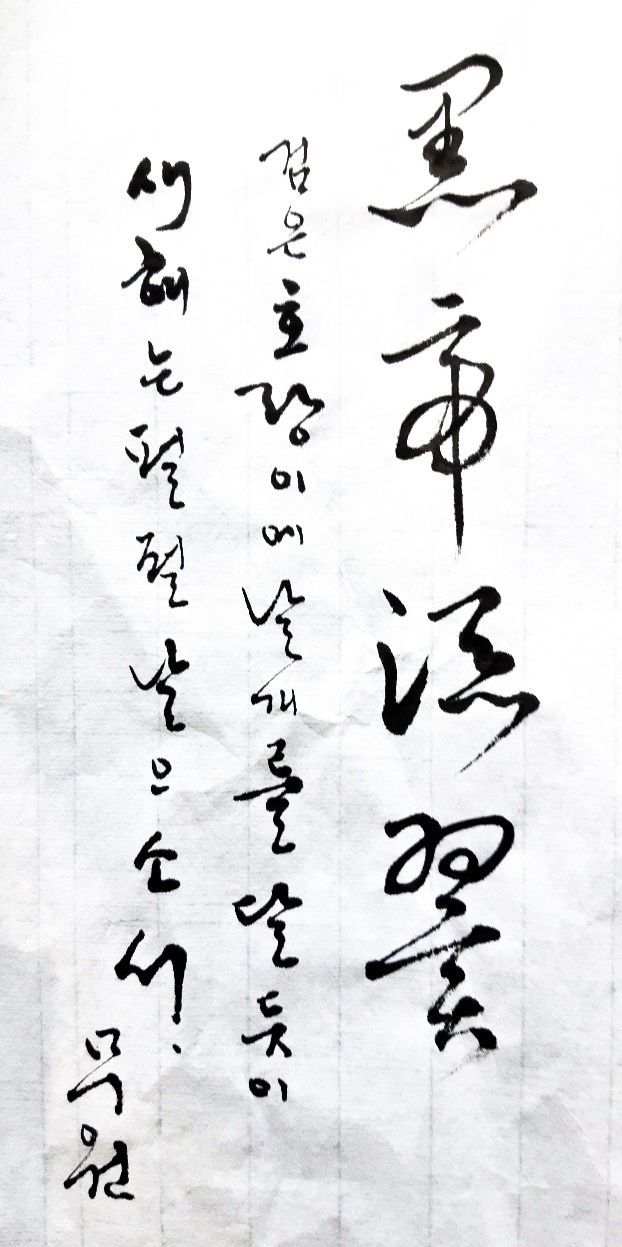 黑虎添翼
검은 호랑이에 날개를 달 듯이
새해는 펄펄 날으소서.
무원